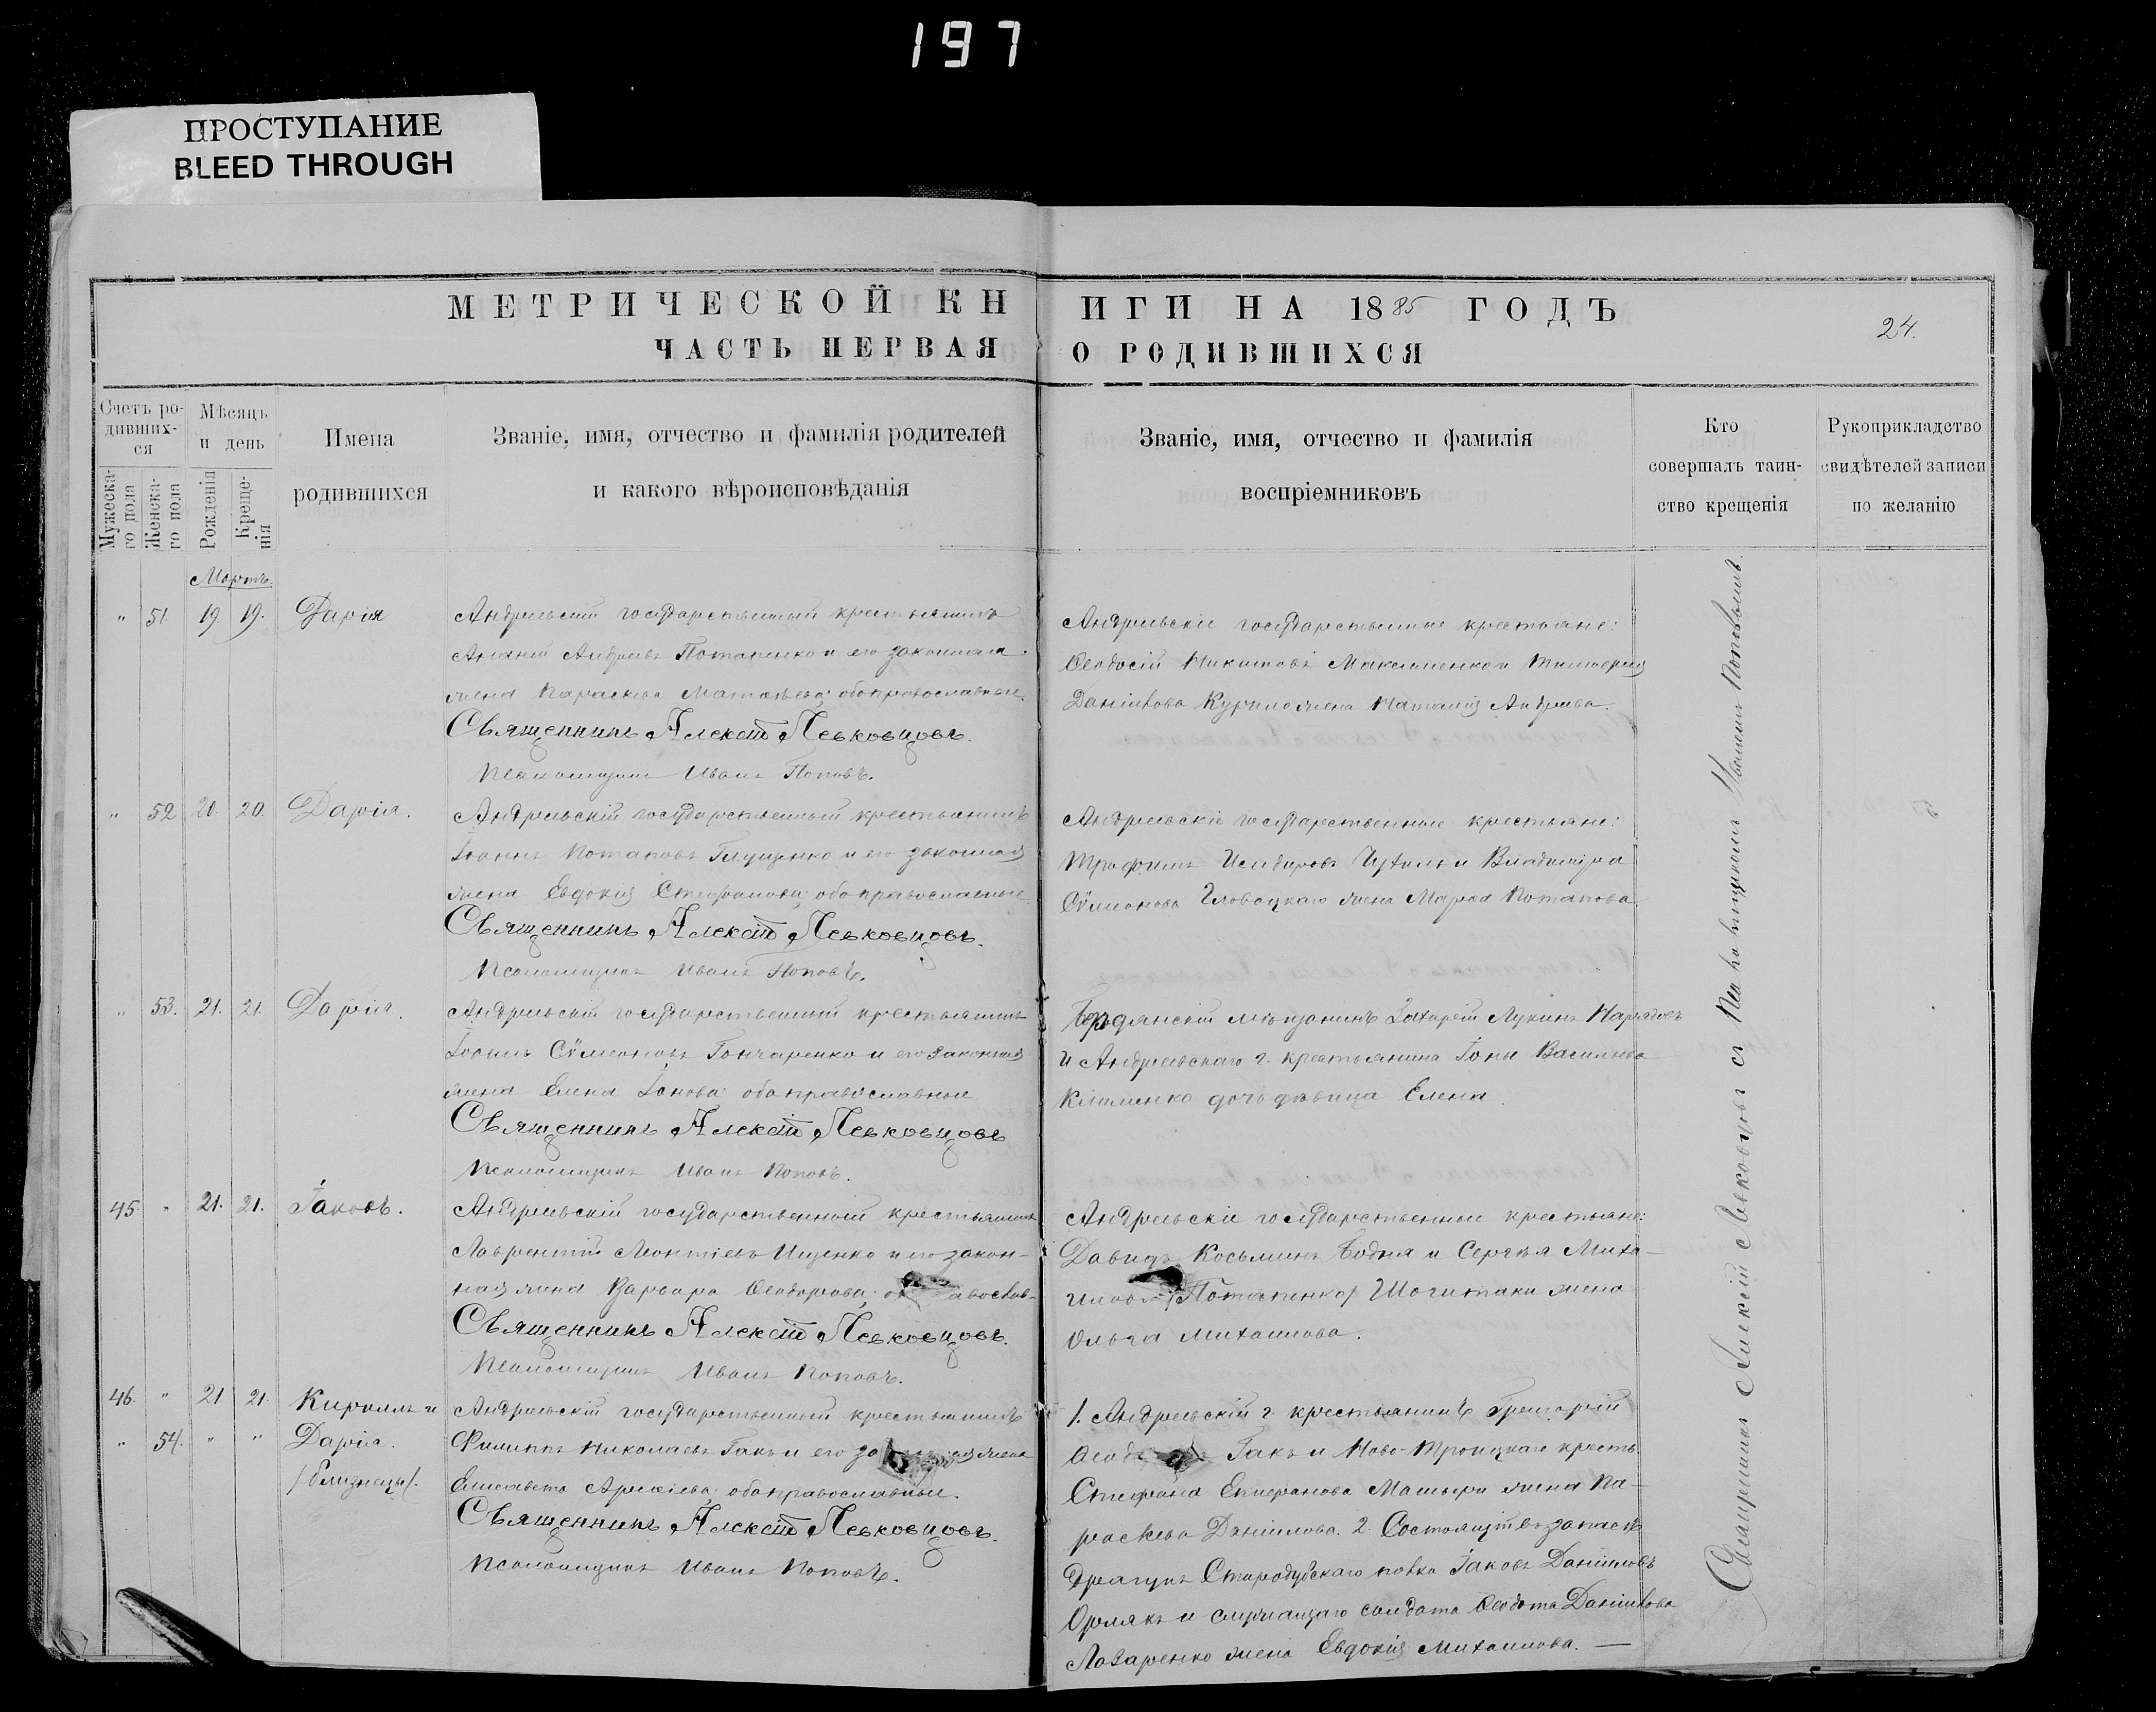 197
ПРОСТУПАНИЕ
BLEED THROUGH
МЕТРИЧЕСКОЙ КНИГИ НА 1885 ГОДЪ
24.
ЧАСТЬ ПЕРВАЯ О РОДИВШИХСЯ
Счетъ ро-
дивших-
ся
Мужеска-
го пола
Женска-
го пола
Мѣсяцъ
и день
Рожденія
Креще-
нія
Имена
родившихся
Званіе, имя, отчество и фамилія родителей
и какого вѣроисповѣданія
Званіе, имя, отчество и фамилія
воспріемниковъ
Кто
совершалъ таин-
ство крещенія
Рукоприкладство
свидѣтелей записи
по желанію
Мартъ.
" 51. 19. 19. Дарія
Андреевскій государственный крестьянинъ
Ананій Андреевъ Потапенко и его законная
жена Параскева Матвѣева; оба православные.
Священникъ Алексій Левковцовъ.
Псаломщикъ Иванъ Поповъ.
Андреевскіе государственные крестьяне:
Ѳеодосій Никитовъ Максименко и Тимоѳея
Даніилова Курило жена Наталія Андреева.
" 52 20. 20. Дарія.
Андреевскій государственный крестьянинъ
Іоаннъ Потаповъ Глущенко и его законная
жена Евдокія Стефанова; оба православные.
Священникъ Алексій Левковцовъ.
Псаломщикъ Иванъ Поповъ.
Андреевскіе государственные крестьяне:
Трофимъ Исидоровъ и Владиміра
Сѵмеонова Гловацкаго жена Марѳа Потапова.
" 53. 21. 21. Дарія.
Андреевскій государственный крестьянинъ
Іоаннъ Сѵмеоновъ Гончаренко и его законная
жена Елена Іонова; оба православные.
Священникъ Алексій Левковцовъ
Псаломщикъ Иванъ Поповъ.
Бердянскій мѣщанинъ Захарій Лукинъ
и Андреевскаго г. крестьянина Іоны Васильева
Клименко дочь дѣвица Елена.
45 " 21. 21. Іаковъ.
Андреевскій государственный крестьянинъ
Лаврентій Ищенко и его закон-
ная жена Варвара Ѳеодорова;
Священникъ Алексій Левковцовъ.
Псаломщикъ Иванъ Поповъ.
Андреевскіе государственные крестьяне:
Давидъ Косьминъ Бодня и Сергѣя Миха-
илова /Потапенко/ жена
Ольга Михаилова.
46. " 21 21. Кириллъ и
" 54. " " Дарія.
/близнецы/.
Андреевскій государственный крестьянинъ
Филиппъ Николаевъ Гакъ и его жена
Елисавета; оба православные.
Священникъ Алексій Левковцовъ.
Псаломщикъ Иванъ Поповъ.
1. Андреевскій г. крестьянинъ Григорій
Гакъ и Ново-Троицкаго крестьян.
Стефана жена Па-
раскева Даніилова. 2. Состоящій въ запасѣ
драгунъ Стародубскаго полка Іаковъ Даніиловъ
и служащаго солдата Ѳеодота Даніилова
Лазаренко жена Евдокія Михаилова. —
Священникъ Алексій Левковцовъ съ Псаломщикомъ Иваномъ Поповымъ.